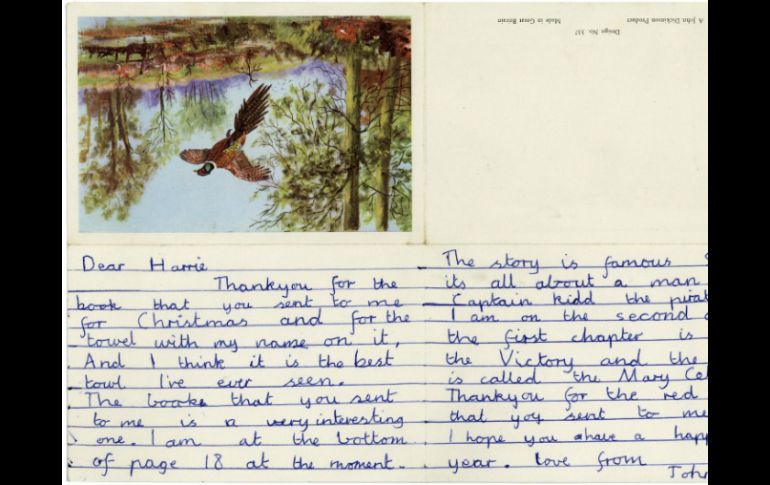 Design No.
A John Dickinson Product
Made in Great Britain
Dear Harrie
Thankyou for the
book that you sent to me
for Christmas and for the
towel with my name on it,
And I think it is the best
towl I've ever seen.
The booke that you sent
to me is a very interesting
one. I am at the bottom
of page 18 at the moment.
The story is famous
its all about a man
Captain kidd the pirat
I am on the second
the first chapter is
the Victory and the
is called the Mary Cel
Thankyou for the red
that you sent to me
I hope you ahave a happ
year. love from
John